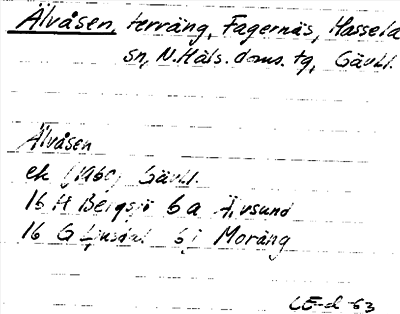 Älvåsen, terräng, Fagernäs, Hassela
sn, N. Häls. doms. tg, Gävll.
Älvåsen
ek (1960) Gävll.
16 H Bergsjö 6 a Älvsund
16 G Ljusdal 6 j Moräng
LE-d -63